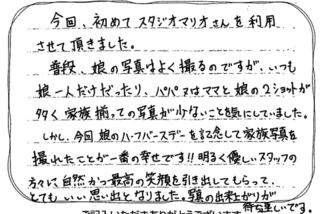 今回、初めてスタジオマリオさんを利用
させて頂きました。
普段、娘の写真はよく撮るのですが、いつも
娘一人だけだったり、パパヌはママと娘の2ショットが
多く家族揃っての写真が少ないことを気にしていました。
しかし、今回娘のハーフバースデーを記念して家族写真を
撮れたことが一番の幸せです!!明るく優しいスタッフの
方々に自然かつ最高の笑顔を引き出してもらって、
とてもいい思い出となりました。写真の出来上がりが
待ち遠しいです。